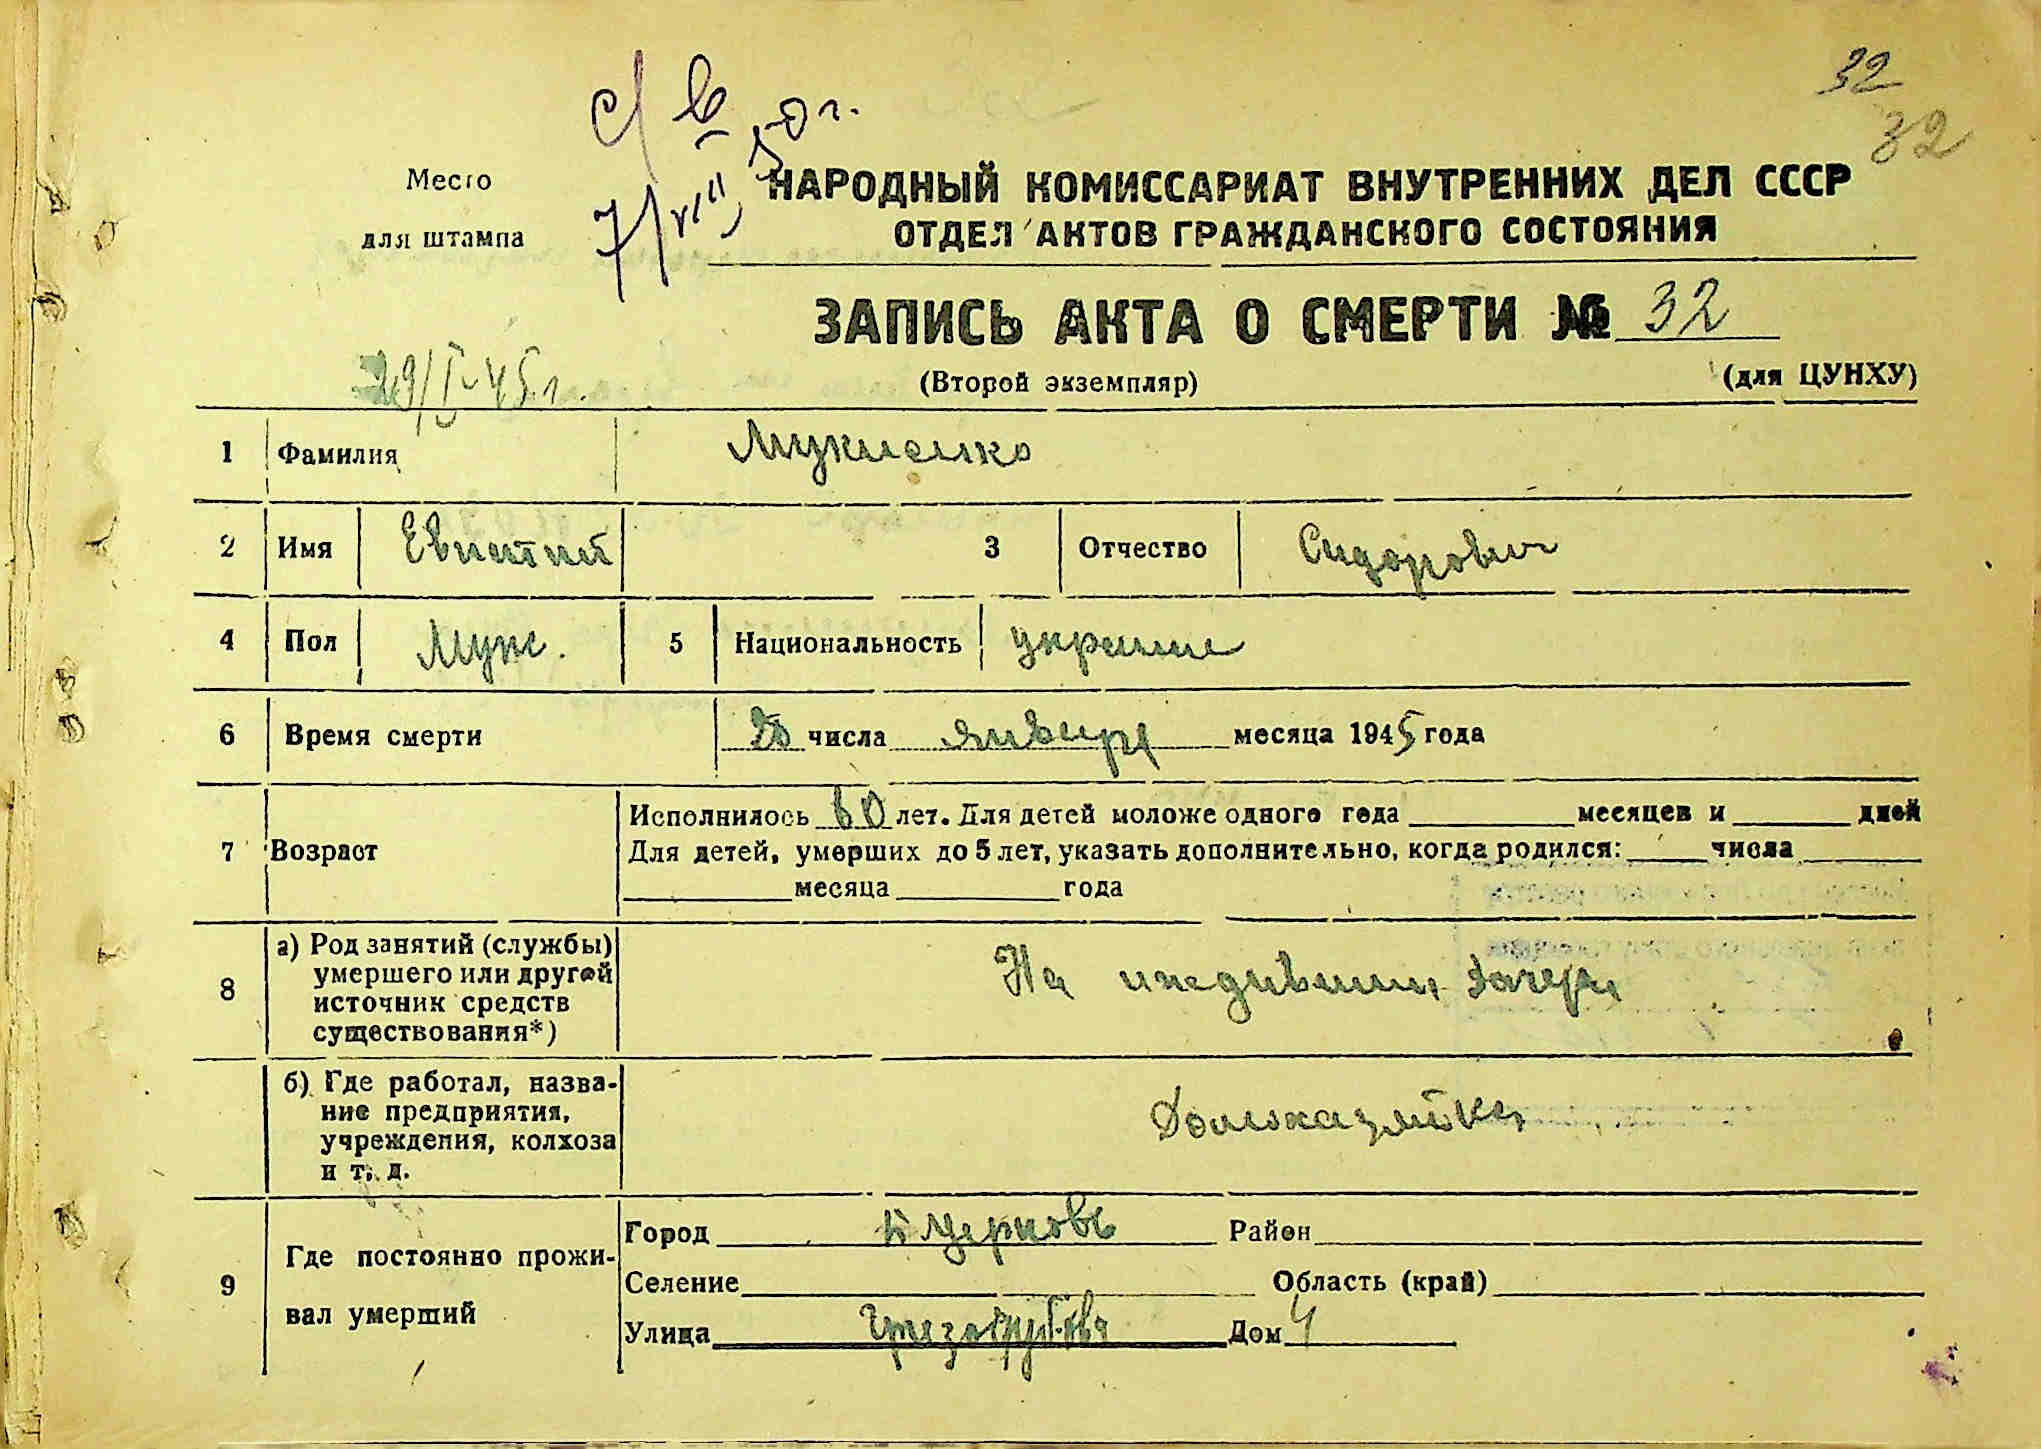 32
32
с/в
7/VIII 50 г.
Место
для штампа
НАРОДНЫЙ КОМИССАРИАТ ВНУТРЕННИХ ДЕЛ СССР
ОТДЕЛ АКТОВ ГРАЖДАНСКОГО СОСТОЯНИЯ
ЗАПИСЬ АКТА О СМЕРТИ № 32
29/I-45 г.
(Второй экземпляр) (для ЦУНХУ)
1 Фамилия
2 Имя 3 Отчество Сидорович
4 Пол Муж. 5 Национальность украинец
6 Время смерти числа января месяца 1945 года
7 Возраст Исполнилось 60 лет. Для детей моложе одного года месяцев и дней
Для детей, умерших до 5 лет, указать дополнительно, когда родился: числа
месяца года
8 а) Род занятий (службы)
умершего или другой
источник средств
существования*)
На иждивении дочери
б) Где работал, назва-
ние предприятия,
учреждения, колхоза
и т. д.
Домохазяйка
9 Где постоянно прожи-
вал умерший
Город Б Церковь Район
Селение Область (край)
Улица Дом 4